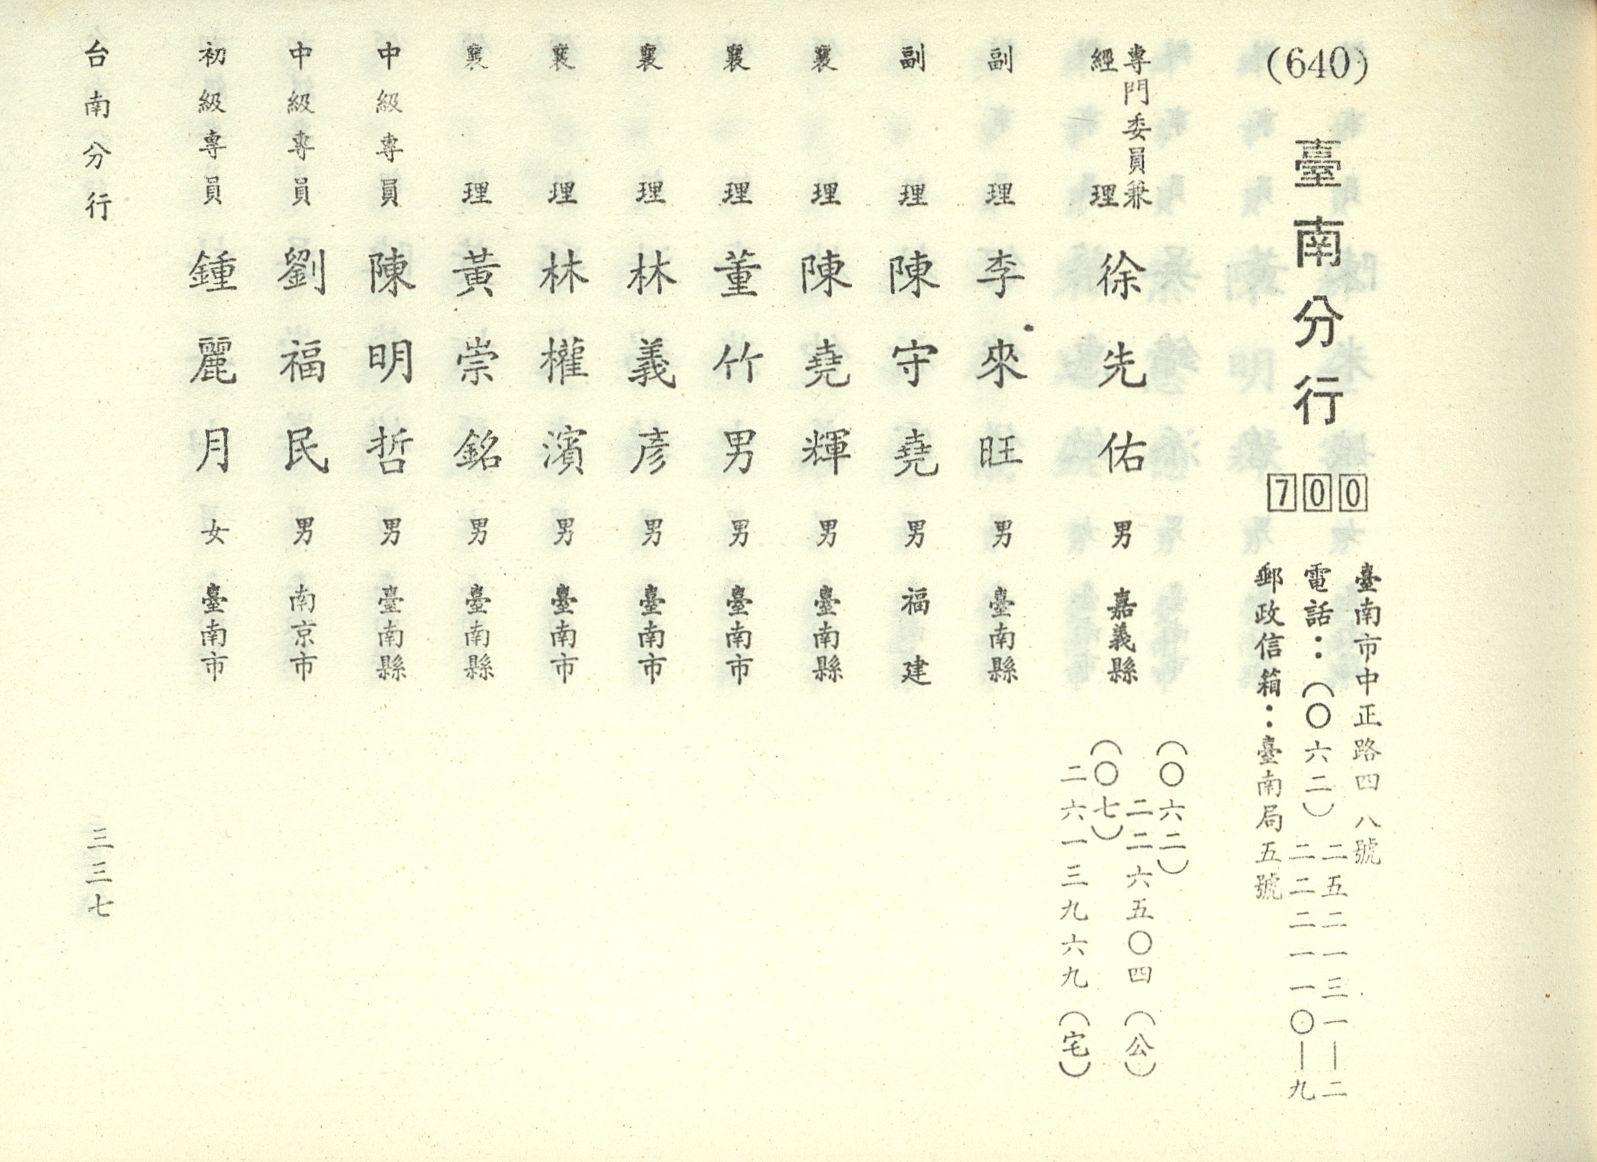 (640)
臺南分行
700
臺南市中正路四八號
電話：（〇六二）
二五二一三一—二
二二二一一〇—九
郵政信箱：臺南局五號
專門委員兼
經理
徐先佑 男 嘉義縣
（〇六二）
二二六五〇四（公）
（〇七）
二六一三九六九（宅）
副理 李來旺 男 臺南縣
副理 陳守堯 男 福建
襄理 陳堯輝 男 臺南縣
襄理 董竹男 男 臺南市
襄理 林義彥 男 臺南市
襄理 林權濱 男 臺南市
襄理 黃崇銘 男 臺南縣
中級專員 陳明哲 男 臺南縣
中級專員 劉福民 男 南京市
初級專員 鍾麗月 女 臺南市
台南分行
三三七